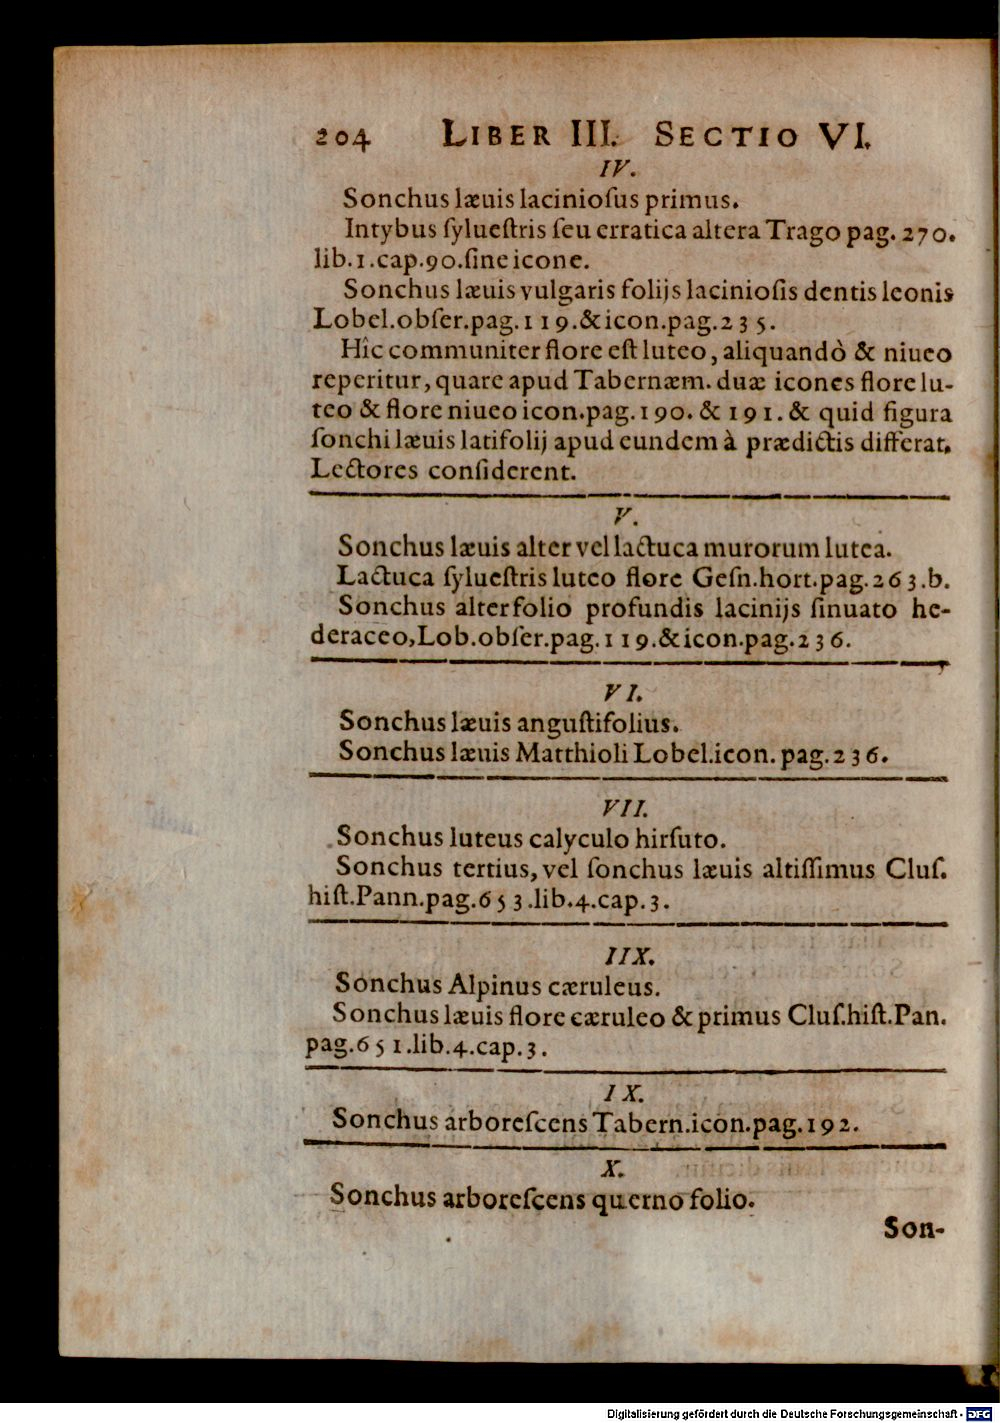 204 LIBER III. SECTIO VI.
IV.
Sonchus læuis lacinioſus primus.
Intybus ſylueſtris ſeu erratica altera Trago pag. 270.
lib. 1. cap. 90. ſine icone.
Sonchus læuis vulgaris folijs lacinioſis dentis leonis
Lobel. obſer. pag. 119. & icon. pag. 235.
Hîc communiter flore eſt luteo, aliquandò & niueo
reperitur, quare apud Tabernæm. duæ icones flore lu-
teo & flore niueo icon. pag. 190. & 191. & quid figura
ſonchi læuis latifolij apud eundem à prædictis differat.
Lectores conſiderent.
V.
Sonchus læuis alter vel lactuca murorum lutea.
Lactuca ſylueſtris luteo flore Geſn. hort. pag. 263. b.
Sonchus alter folio profundis lacinijs ſinuato he-
deraceo, Lob. obſer. pag. 119. & icon. pag. 236.
VI.
Sonchus læuis anguſtifolius.
Sonchus læuis Matthioli Lobel. icon. pag. 236.
VII.
Sonchus luteus calyculo hirſuto.
Sonchus tertius, vel ſonchus læuis altiſſimus Cluſ.
hiſt. Pann. pag. 653. lib. 4. cap. 3.
IIX.
Sonchus Alpinus cæruleus.
Sonchus læuis flore cæruleo & primus Cluſ. hiſt. Pan.
pag. 651. lib. 4. cap. 3.
IX.
Sonchus arboreſcens Tabern. icon. pag. 192.
X.
Sonchus arboreſcens querno folio.
Son-
Digitalisierung gefördert durch die Deutsche Forschungsgemeinschaft - DFG